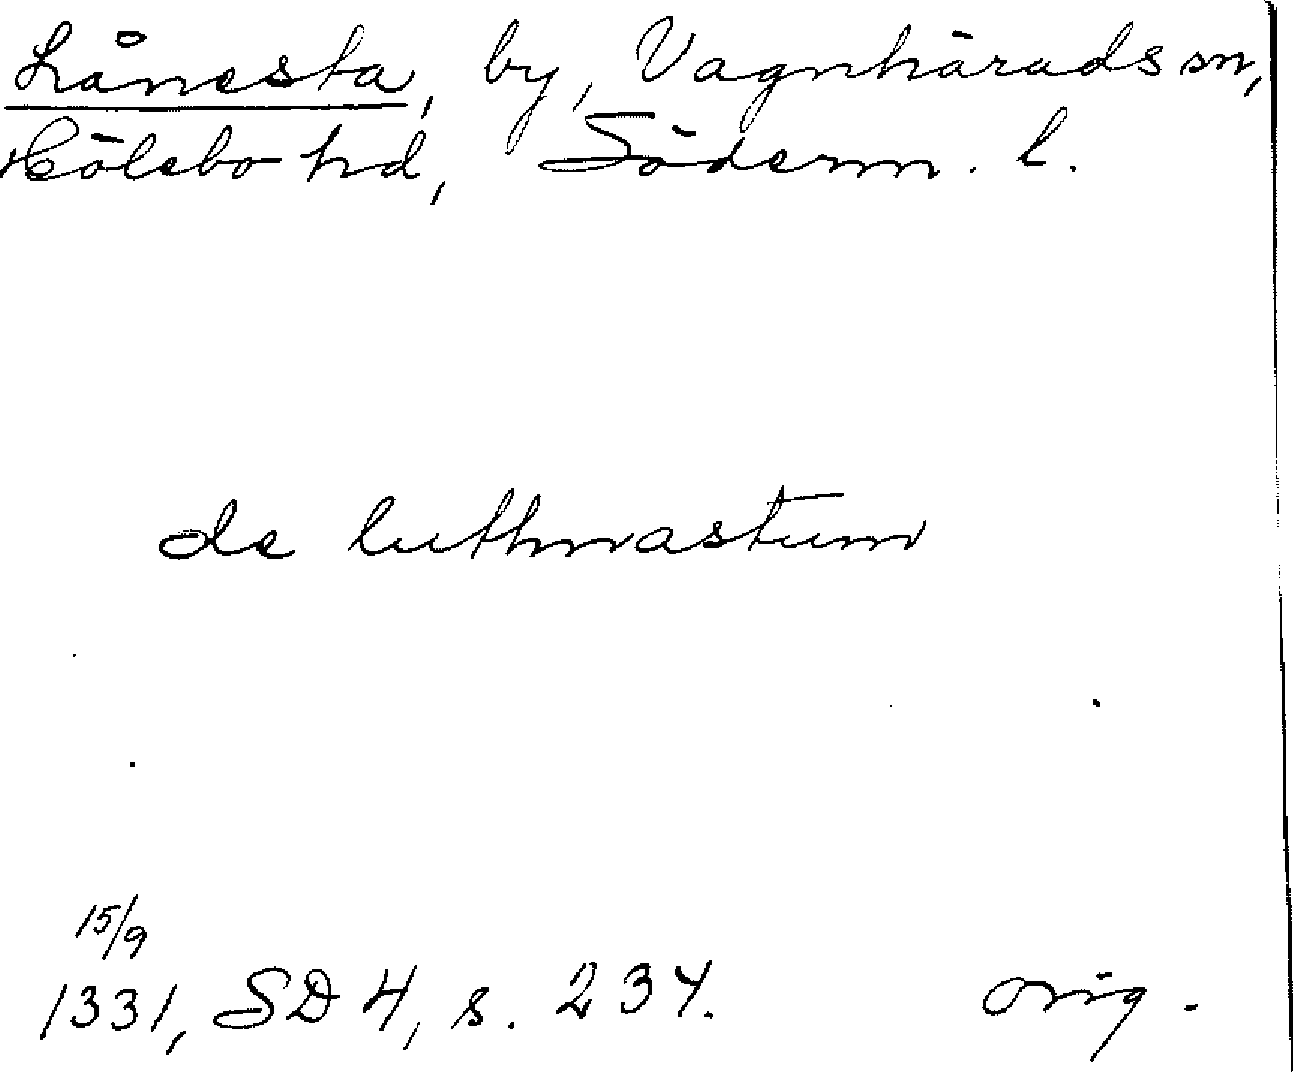 Lånesta, by, Vagnhärads sn,
Hölebo hd, Söderm. l.
de luthnastum
15/9
1331, SD 4, s. 234. orig.